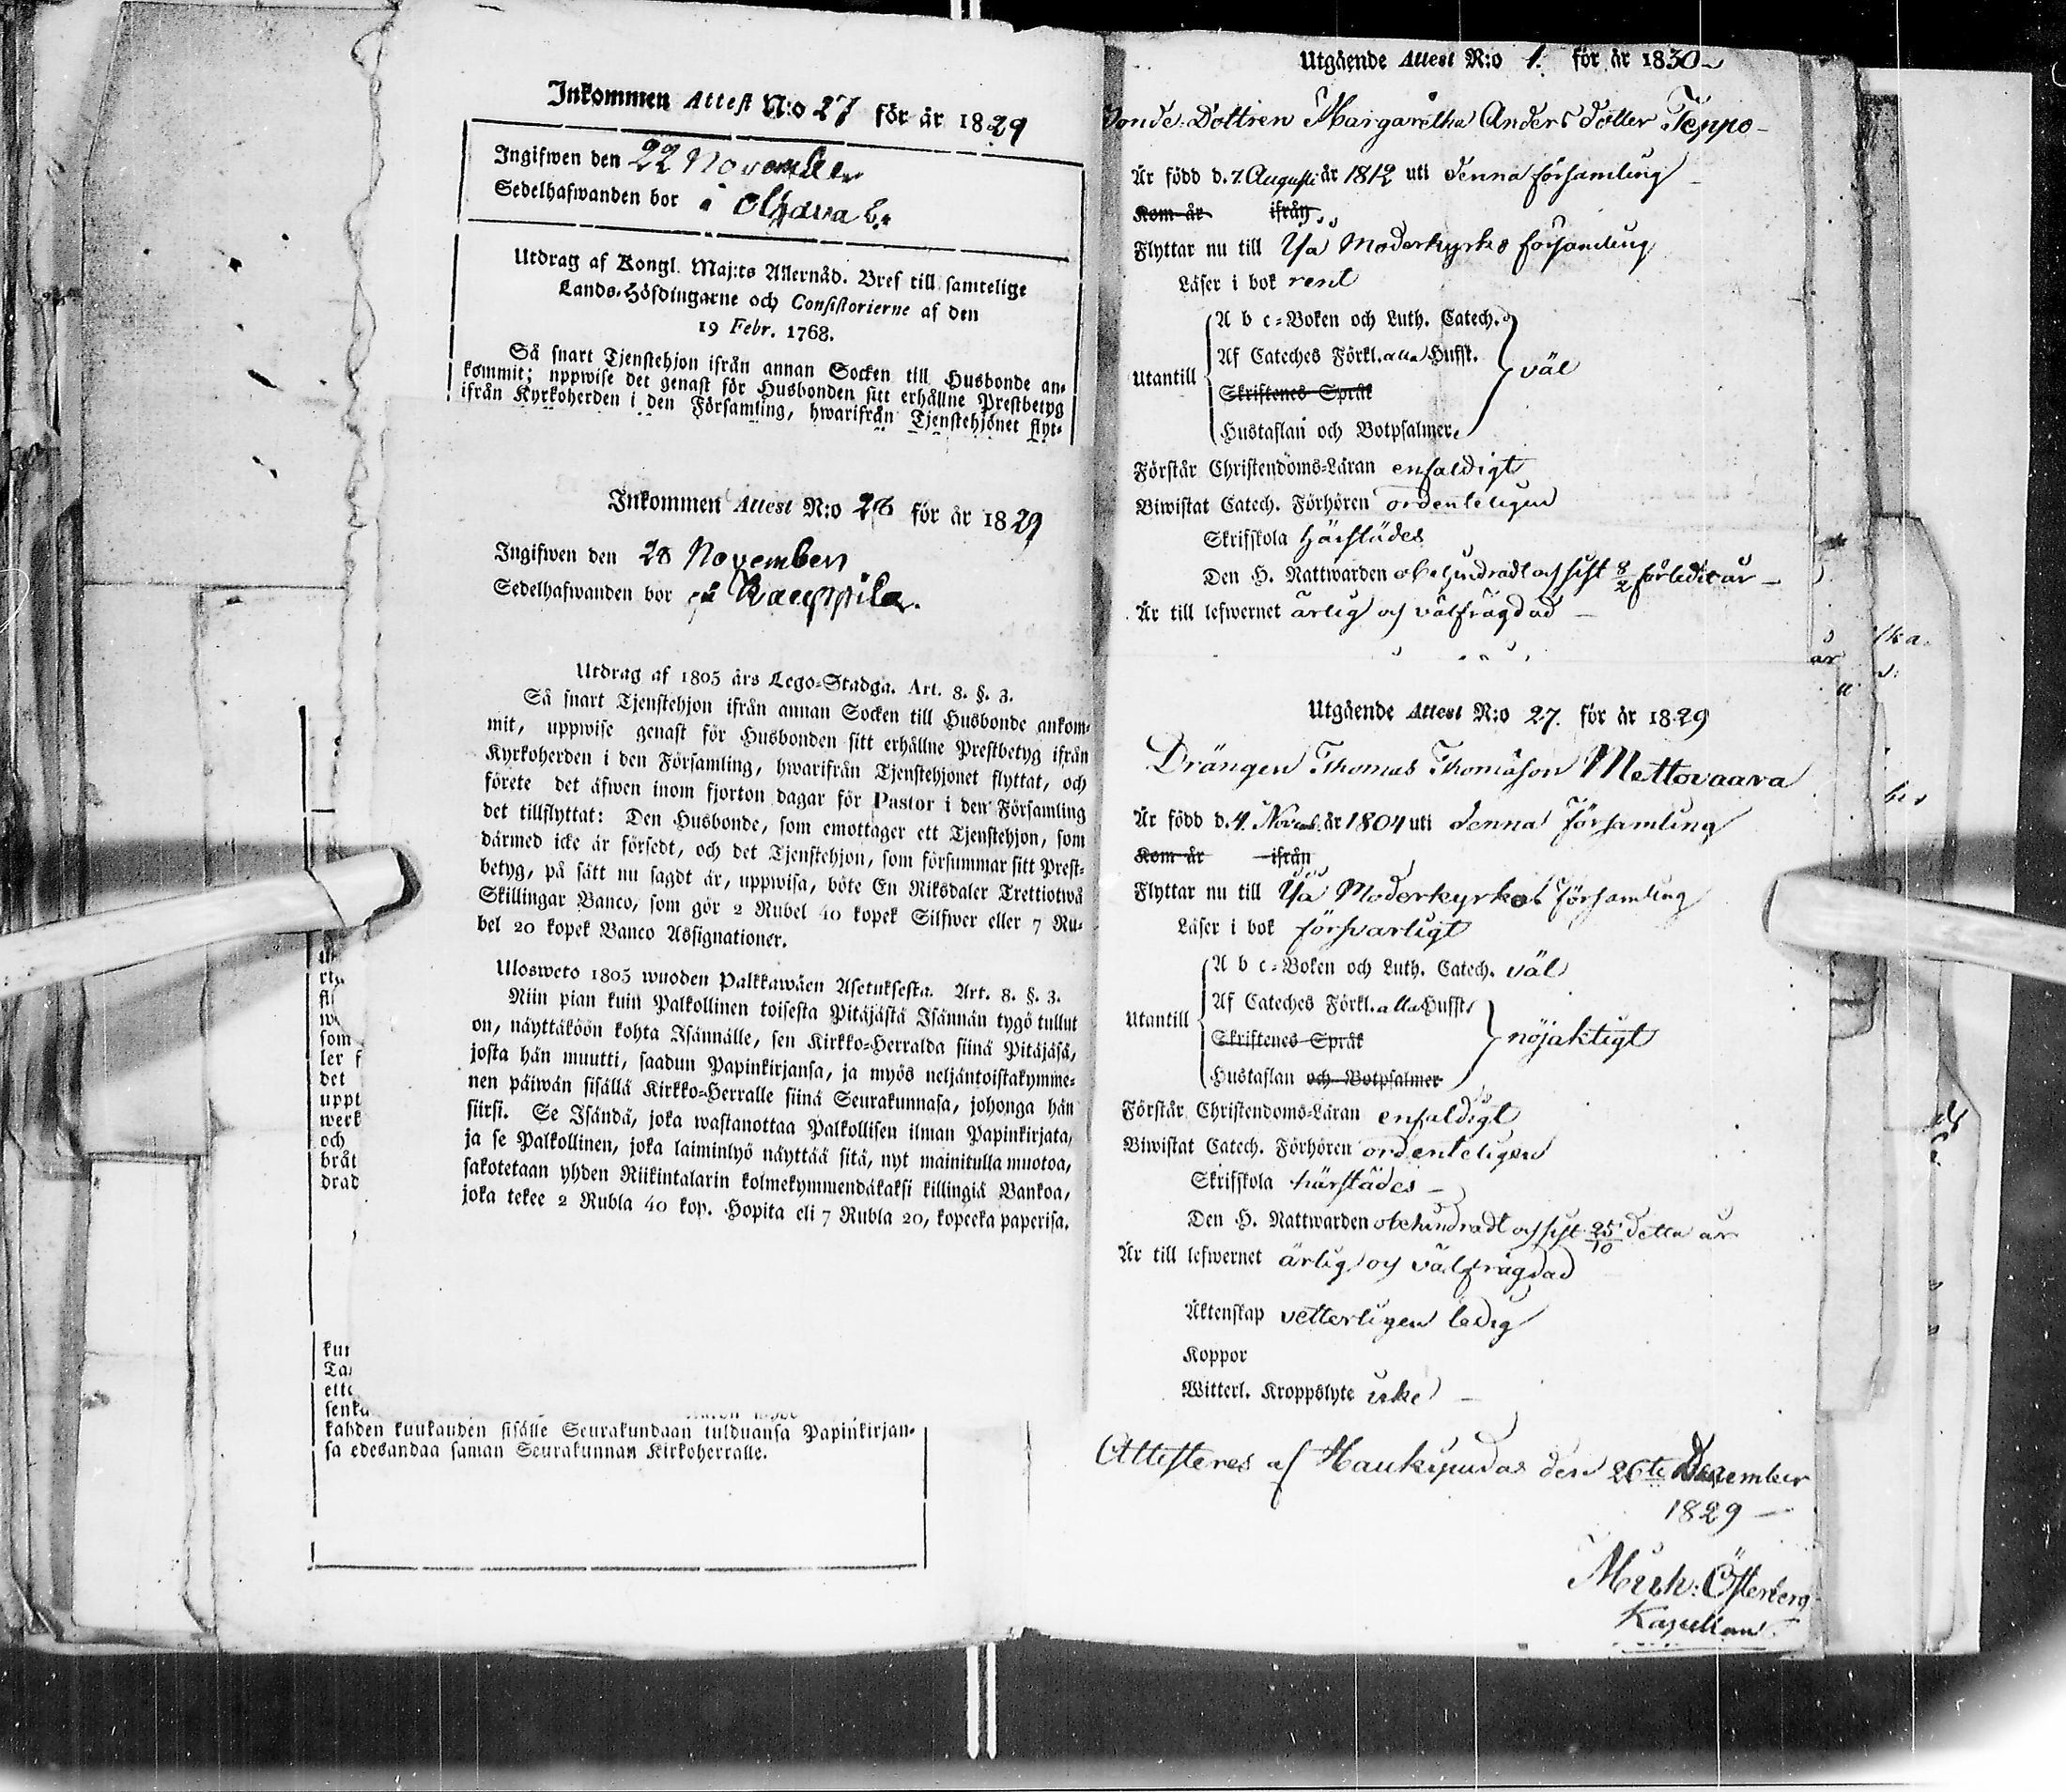 Inkommen Attest N:o 27 för år 1829
Ingifwen den 22 November
Sedelhafwanden bor å Olhava by
Utdrag af Kongl. Maj:ts Allernåd. Bref till samtelige
Lands-Höfdingarne och Consistorierne af den
19 Febr. 1768.
Så snart Tjenstehjon ifrån annan Socken till Husbonde an-
kommit; uppwise det genast för Husbonden sitt erhållne Prestbetyg
ifrån Kyrkoherden i den Församling, hwarifrån Tjenstehjonet flyt-
Inkommen Attest N:o 28 för år 1829
Ingifwen den 28 November
Sedelhafwanden bor på Kauppila.
Utdrag af 1805 års Lego-Stadga. Art. 8. §. 3.
Så snart Tjenstehjon ifrån annan Socken till Husbonde ankom-
mit, uppwise genast för Husbonden sitt erhållne Prestbetyg ifrån
Kyrkoherden i den Församling, hwarifrån Tjenstehjonet flyttat, och
förete det äfwen inom fjorton dagar för Pastor i den Församling
det tillflyttat: Den Husbonde, som emottager ett Tjenstehjon, som
därmed icke är försedt, och det Tjenstehjon, som försummar sitt Prest-
betyg, på sätt nu sagdt är, uppwisa, böte En Riksdaler Trettiotwå
Skillingar Banco, som gör 2 Rubel 40 kopek Silfwer eller 7 Ru-
bel 20 kopek Banco Assignationer.
Ulosweto 1805 wuoden Palkkawäen Asetuksesta. Art. 8. §. 3.
Niin pian kuin Palkollinen toisesta Pitäjästä Isännän tygö tullut
on, näyttäköön kohta Isännälle, sen Kirkko-Herralda siinä Pitäjäsä,
josta hän muutti, saadun Papinkirjansa, ja myös neljäntoistakymme-
nen päiwän sisällä Kirkko-Herralle siinä Seurakunnasa, johonga hän
siirsi. Se Isändä, joka wastanottaa Palkollisen ilman Papinkirjata,
ja se Palkollinen, joka laiminlyö näyttää sitä, nyt mainitulla muotoa,
sakotetaan yhden Riikintalarin kolmekymmendäkaksi killingiä Bankoa,
joka tekee 2 Rubla 40 kop. Hopita eli 7 Rubla 20, kopeeka paperisa.
som
ler f
det
uppt
werk
och
bråt
drad
kun
Ta
ette
senka
kahden kuukauden sisälle Seurakundaan tulduansa Papinkirjan-
sa edesandaa saman Seurakunnan Kirkoherralle.
Utgående Attest N:o 1. för år 1830
Bonde Dottren Margaretha Anders dotter Teppo
Är född d. 7. Augusti år 1812 uti denna församling
Kom år ifrån
Flyttar nu till Ijå Moderkyrko församling
Läser i bok rent
Utantill
A b c-Boken och Luth. Catech.
Af Cateches Förkl. alla Hufst.
Skriftenes Språk
Hustaflan och Botpsalmer.
väl
Förstår Christendoms-Läran enfaldigt
Biwistat Catech. Förhören ordenteligen
Skrifskola härstädes
Den H. Nattwarden obehindradt och sist 8/2 förledit år
Är till lefwernet ärlig och välfrägdad
Utgående Attest N:o 27. för år 1829
Drängen Thomas Thomasson Mettovaara
Är född d. 4. Novemb. år 1804 uti denna Församling
Kom år ifrån
Flyttar nu till Ijå Moderkyrkos församling
Läser i bok försvarligt
Utantill
A b c-Boken och Luth. Catech. väl
Af Cateches Förkl. alla Hufst.
Skriftenes Språk
Hustaflan och Botpsalmer
nöjaktigt
Förstår Christendoms-Läran enfaldigt
Biwistat Catech. Förhören ordenteligen
Skrifskola härstädes
Den H. Nattwarden obehindradt och sist 25/10 detta år
Är till lefwernet ärlig och välfrägdad
Äktenskap vetterligen ledig
Koppor
Witterl. Kroppslyte icke
Attesteres af Haukipudas den 26te December
1829
Mich: Österberg
Kapellan